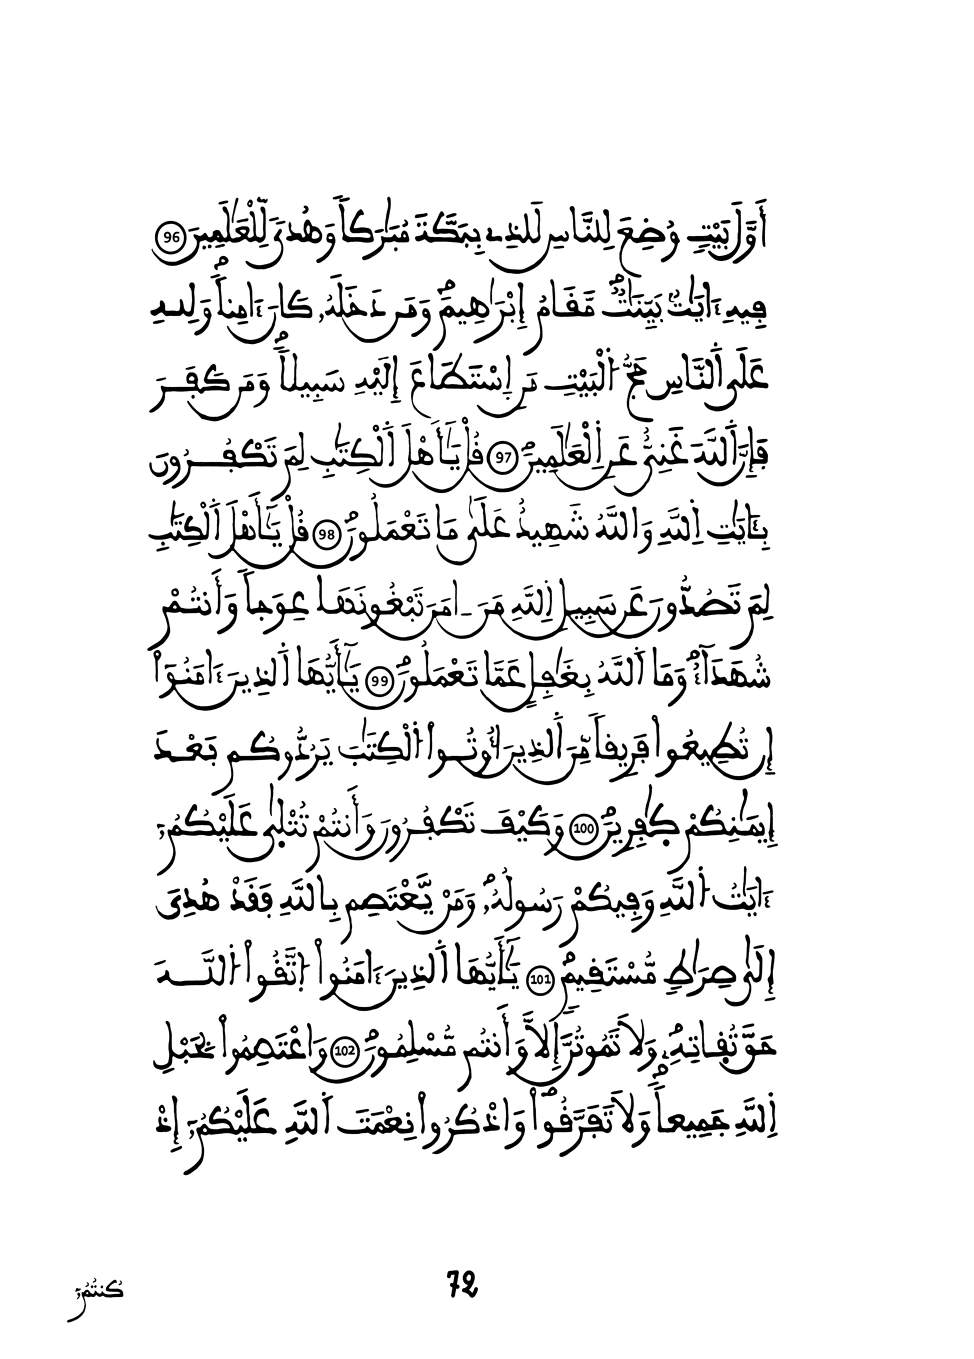 أَوَّلَ بَيْتٍ وُضِعَ لِلنَّاسِ لَلذِے بِبَكَّةَ مُبَٰرَكاً وَهُدىً لِّلْعَٰلَمِينَ 96
فِيهِ ءَايَٰتُۢ بَيِّنَٰتٌ مَّقَامُ إِبْرَٰهِيمَۖ وَمَن دَخَلَهُۥ كَانَ ءَامِناًۖ وَلِلهِ
عَلَى اَلنَّاسِ حَجُّ اُلْبَيْتِ مَنِ اِسْتَطَاعَ إِلَيْهِ سَبِيلاًۖ وَمَن كَفَرَ
فَإِنَّ اَللَّهَ غَنِيٌّ عَنِ اِلْعَٰلَمِينَۖ 97 قُلْ يَٰٓأَهْلَ اَلْكِتَٰبِ لِمَ تَكْفُرُونَ
بِـَٔايَٰتِ اِللَّهِ وَاللَّهُ شَهِيدٌ عَلَىٰ مَا تَعْمَلُونَۖ 98 قُلْ يَٰٓأَهْلَ اَلْكِتَٰبِ
لِمَ تَصُدُّونَ عَن سَبِيلِ اِللَّهِ مَنَ ـ امَنَ تَبْغُونَهَا عِوَجاً وَأَنتُمْ
شُهَدَآءُۖ وَمَا اَللَّهُ بِغَٰفِلٍ عَمَّا تَعْمَلُونَۖ 99 يَٰٓأَيُّهَا اَلذِينَ ءَامَنُوٓاْ
إِن تُطِيعُواْ فَرِيقاً مِّنَ اَلذِينَ أُوتُواْ اُلْكِتَٰبَ يَرُدُّوكُم بَعْدَ
إِيمَٰنِكُمْ كَٰفِرِينَۖ 100 وَكَيْفَ تَكْفُرُونَ وَأَنتُمْ تُتْلَىٰ عَلَيْكُمُۥٓ
ءَايَٰتُ اُللَّهِ وَفِيكُمْ رَسُولُهُۥۖ وَمَنْ يَّعْتَصِم بِاللَّهِ فَقَدْ هُدِىَ
إِلَىٰ صِرَٰطٍ مُّسْتَقِيمٍۖ 101 يَٰٓأَيُّهَا اَلذِينَ ءَامَنُواْ اُتَّقُواْ اُللَّهَ
حَقَّ تُقَاتِهِۦ وَلَا تَمُوتُنَّ إِلَّا وَأَنتُم مُّسْلِمُونَۖ 102 وَاعْتَصِمُواْ بِحَبْلِ
اِللَّهِ جَمِيعاًۖ وَلَا تَفَرَّقُواْۖ وَاذْكُرُواْ نِعْمَتَ اَللَّهِ عَلَيْكُمُۥٓ إِذْ
كُنتُمُۥٓ
72